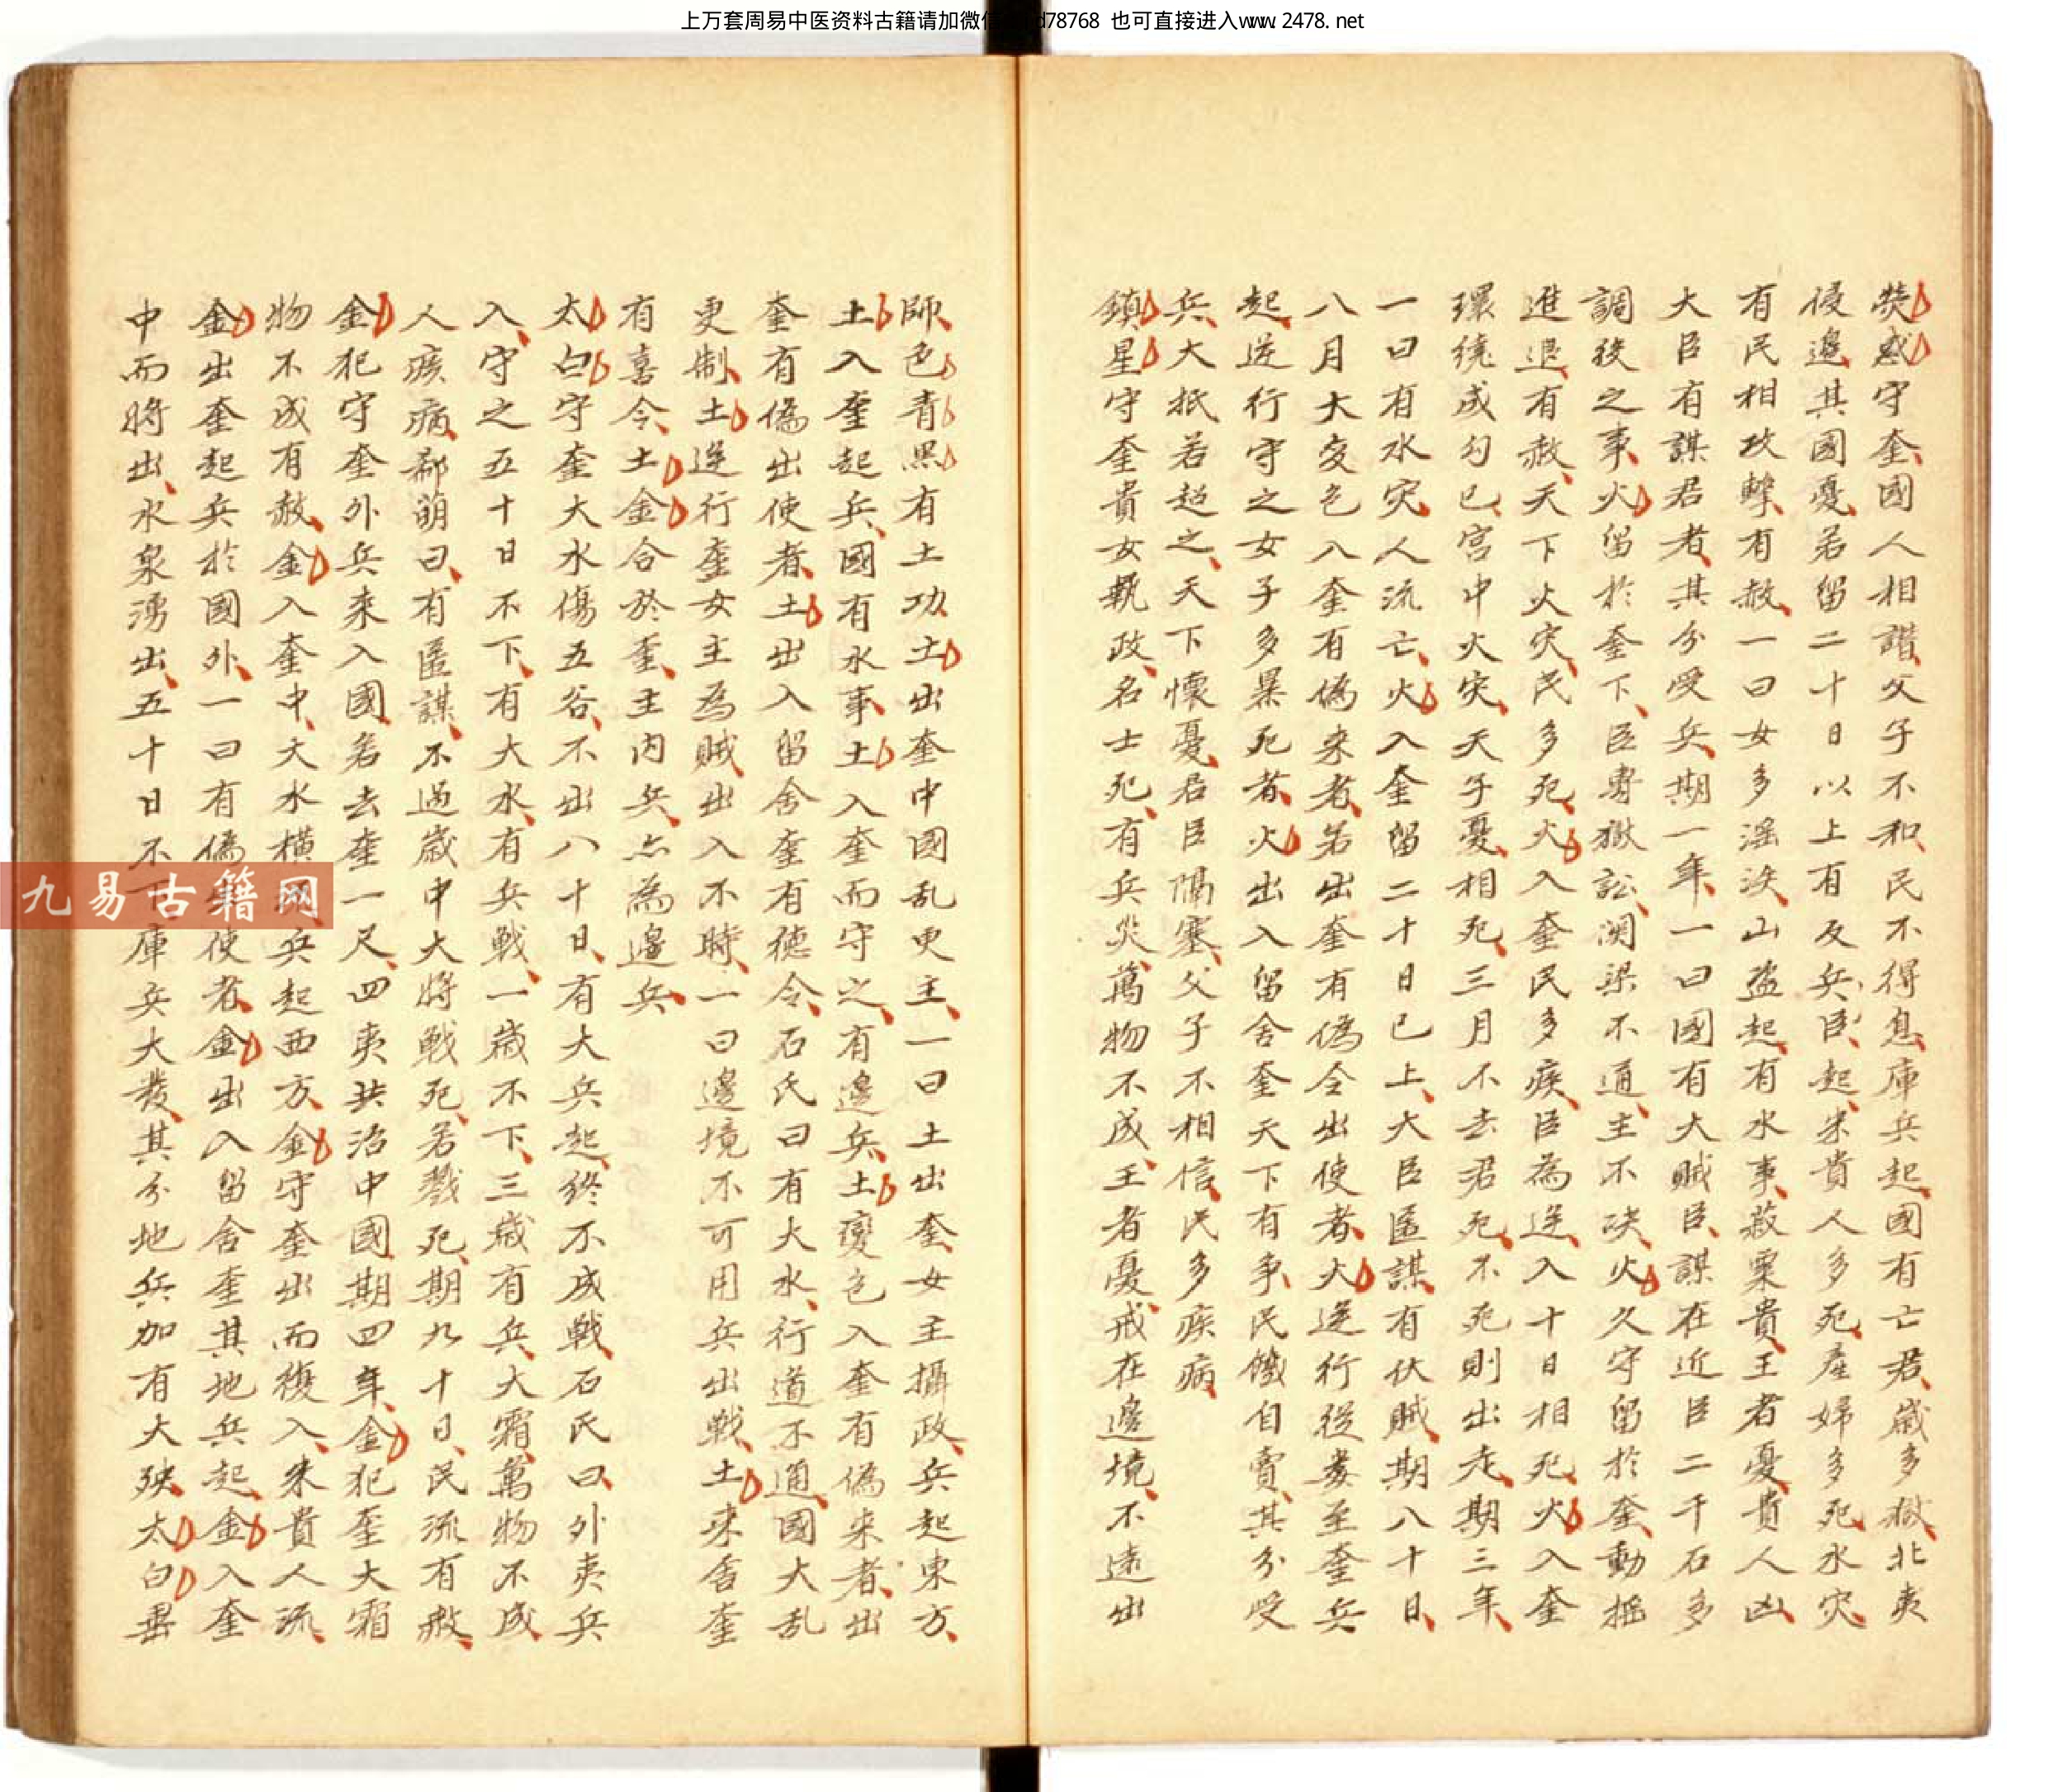 上万套周易中医资料古籍请加微信 d78768 也可直接进入www.2478.net
熒惑守奎國人相譛父子不和民不得息庫兵起國有亡君歲多獄北夷
侵邉其國憂若留二十日以上有反兵臣起米貴人多死産婦多死水灾
有民相攻擊有赦一曰女多滛泆山盗起有水事菽粟貴王者憂貴人凶
大臣有謀君者其分受兵期一年一曰國有大賊臣謀在近臣二千石多
調發之事火留於奎下臣專獄訟関梁不通主不决火久守留於奎動揺
進退有赦天下火灾民多死火入奎民多疾臣為逆入十日相死火入奎
環繞成勾已宮中火灾天子憂相死三月不去君死不死則出走期三年
一曰有水灾人流亡火入奎留二十日已上大臣匿謀有伏賊期八十日
八月大变色入奎有偽来者若出奎有偽令出使者火逆行従婁至奎兵
起逆行守之女子多暴死者火出入留舍奎天下有争民饑自賣其分受
兵大抵若超之天下懷憂君臣隔塞父子不相信民多疾病
鎮星守奎貴女執政名士死有兵災萬物不成王者憂戒在邊境不遠出
師色青黒有土功土出奎中國乱更主一曰土出奎女主攝政兵起東方
土入奎起兵國有水事土入奎而守之有邊兵土變色入奎有偽来者出
奎有偽出使者土出入留舍奎有徳令石氏曰有大水行道不通國大乱
更制土逆行奎女主為賊出入不時一曰邊境不可用兵出戦土来舍奎
有喜令土金合於奎主内兵亦為邊兵
太白守奎大水傷五谷不出八十日有大兵起終不成戦石氏曰外夷兵
入守之五十日不下有大水有兵戦一歳不下三歳有兵大霜萬物不成
人疾病郗萌曰有匿謀不過歳中大將戦死若戮死期九十日民流有赦
金犯守奎外兵来入國若去奎一尺四夷共治中國期四年金犯奎大霜
物不成有赦金入奎中大水横 兵起西方金守奎出而復入米貴人流
金出奎起兵於國外一曰有偽 使者金出入留舍奎其地兵起金入奎
中而將出水泉湧出五十日不下庫兵大發其分地兵加有大殃太白晝
九易古籍网